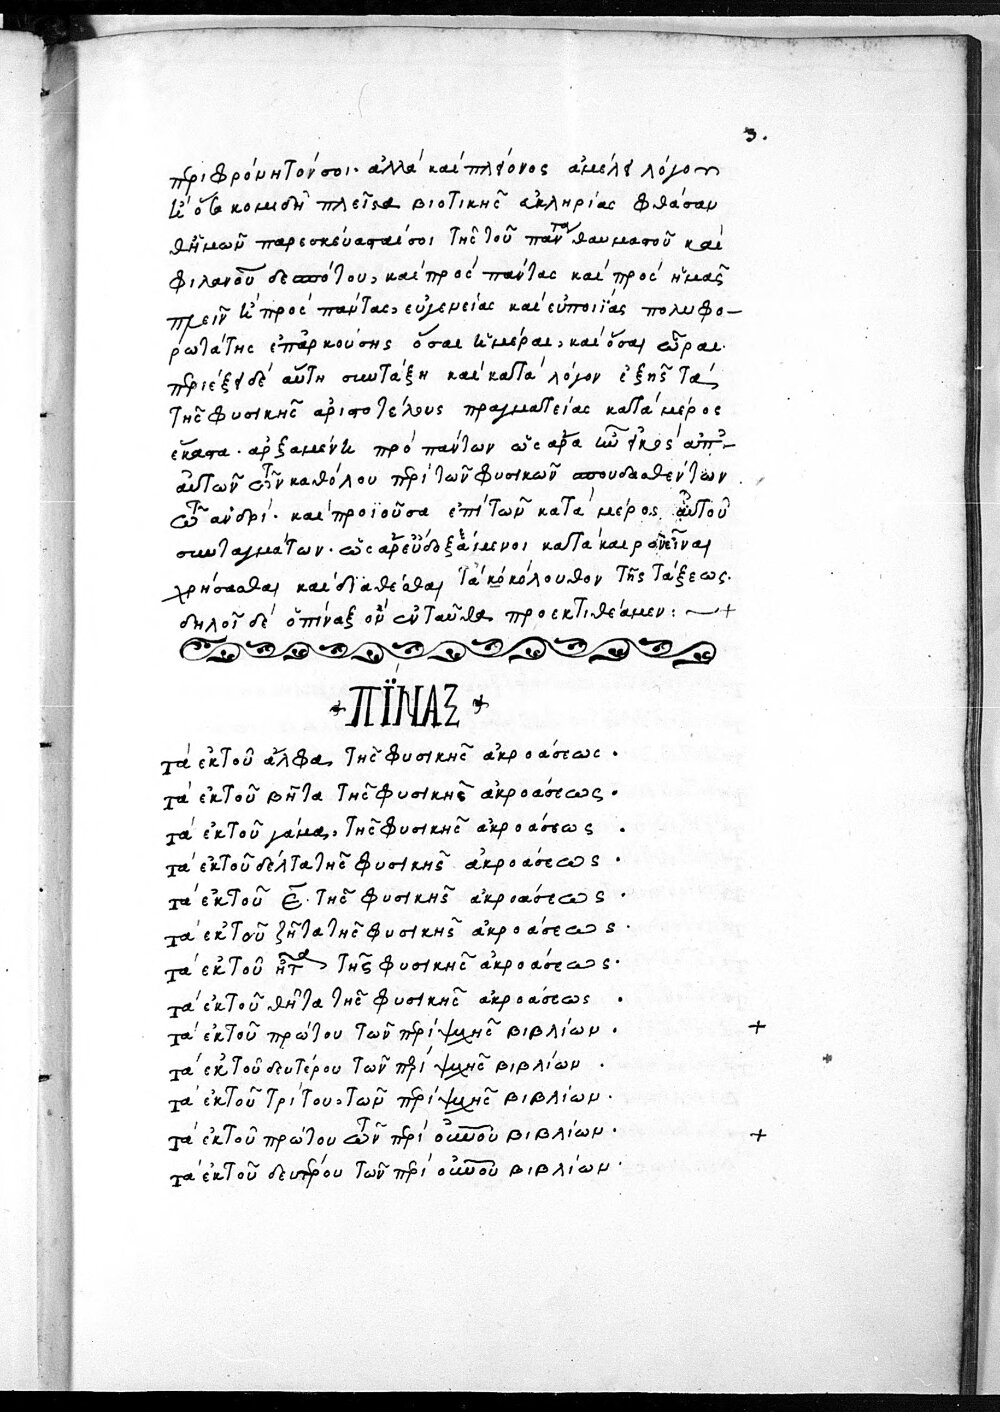 3.
περιφρόνητόν σοι. ἀλλὰ καὶ πλείονος ἀμέλει λόγου
πλεῖστα βιοτικῆς ἀκληρίας φθάσαν
παρεσκεύασταί σοι τῆς τοῦ παντὸς θαυμαστοῦ καὶ
φιλανου δεσπότου, καὶ πρὸς πάντας καὶ πρὸς ἡμᾶς
πλεῖν ἢ πρὸς πάντας, εὐμενείας καὶ εὐποιΐας πολυφο-
ρωτάτης ἐπαρκούσης ὅσαι ἡμέραι, καὶ ὅσαι ὧραι.
περιέξει δὲ αὕτη συντάξη καὶ κατὰ λόγον ἑξῆς τὰ
τῆς φυσικῆς ἀριστοτέλους πραγματείας κατὰ μέρος
ἕκαστα. ἀρξαμένη πρὸ πάντων ὡς ἄρα ἦν εἰκὸς ἀπ'
αὐτῶν τῶν καθόλου περὶ τῶν φυσικῶν σπουδασθέντων
τῷ ἀνδρί. καὶ προϊοῦσα ἐπὶ τῶν κατὰ μέρος αὐτοῦ
συνταγμάτων. ὡς ἂν εὐδεξάμενοι κατὰ καιρὸν εἶναι
χρήσασθαι καὶ διαθέσθαι τἀκόλουθον τῆς τάξεως.
δηλοῖ δὲ ὁ πίναξ ὃν ἐνταῦθα προεκτιθέαμεν: ~+
+ ΠΪΝΑΞ +
τὰ ἐκ τοῦ ἄλφα, τῆς φυσικῆς ἀκροάσεως.
τὰ ἐκ τοῦ βῆτα τῆς φυσικῆς ἀκροάσεως.
τὰ ἐκ τοῦ γάμα, τῆς φυσικῆς ἀκροάσεως.
τὰ ἐκ τοῦ δέλτα τῆς φυσικῆς ἀκροάσεως.
τὰ ἐκ τοῦ ε̄. τῆς φυσικῆς ἀκροάσεως.
τὰ ἐκ τοῦ ζῆτα τῆς φυσικῆς ἀκροάσεως.
τὰ ἐκ τοῦ ἦτα τῆς φυσικῆς ἀκροάσεως.
τὰ ἐκ τοῦ θῆτα τῆς φυσικῆς ἀκροάσεως.
τὰ ἐκ τοῦ πρώτου τῶν περὶ ψυχῆς βιβλίων. +
τὰ ἐκ τοῦ δευτέρου τῶν περὶ ψυχῆς βιβλίων.
τὰ ἐκ τοῦ τρίτου, τῶν περὶ ψυχῆς βιβλίων.
τὰ ἐκ τοῦ πρώτου τῶν περὶ οὐνου βιβλίων. +
τὰ ἐκ τοῦ δευτέρου τῶν περὶ οὐνου βιβλίων.